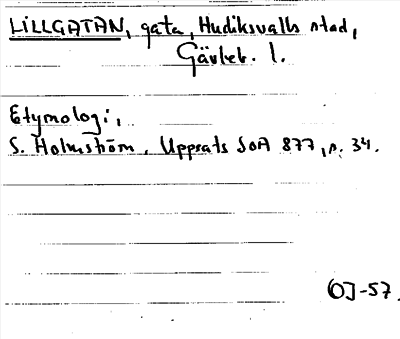 LILLGATAN, gata, Hudiksvalls stad,
Gävleb. l.
Etymologi,
S. Holmström, Uppsats SOA 877, s. 34.
OJ-57.